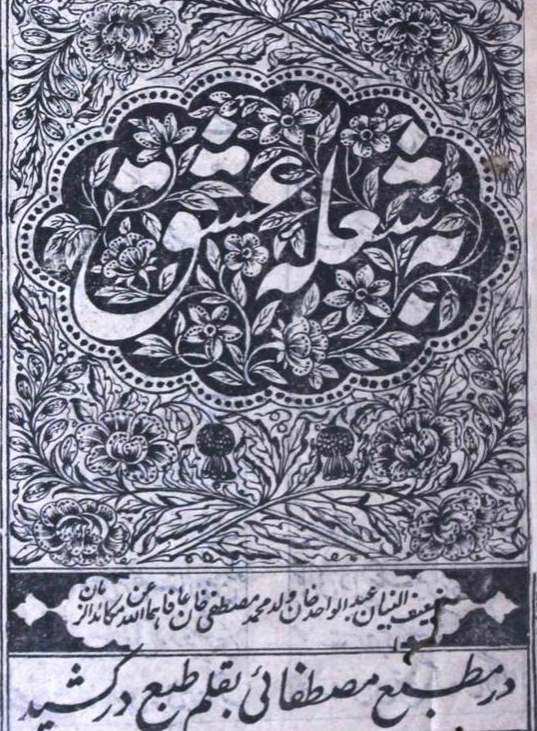 شعله عشق
ضعیف البنیان عبدالواحد خان ولد محمد مصطفی خان عافاهما الله عن مکائد الزمان
در مطبع مصطفائی بقلم طبع درکشید